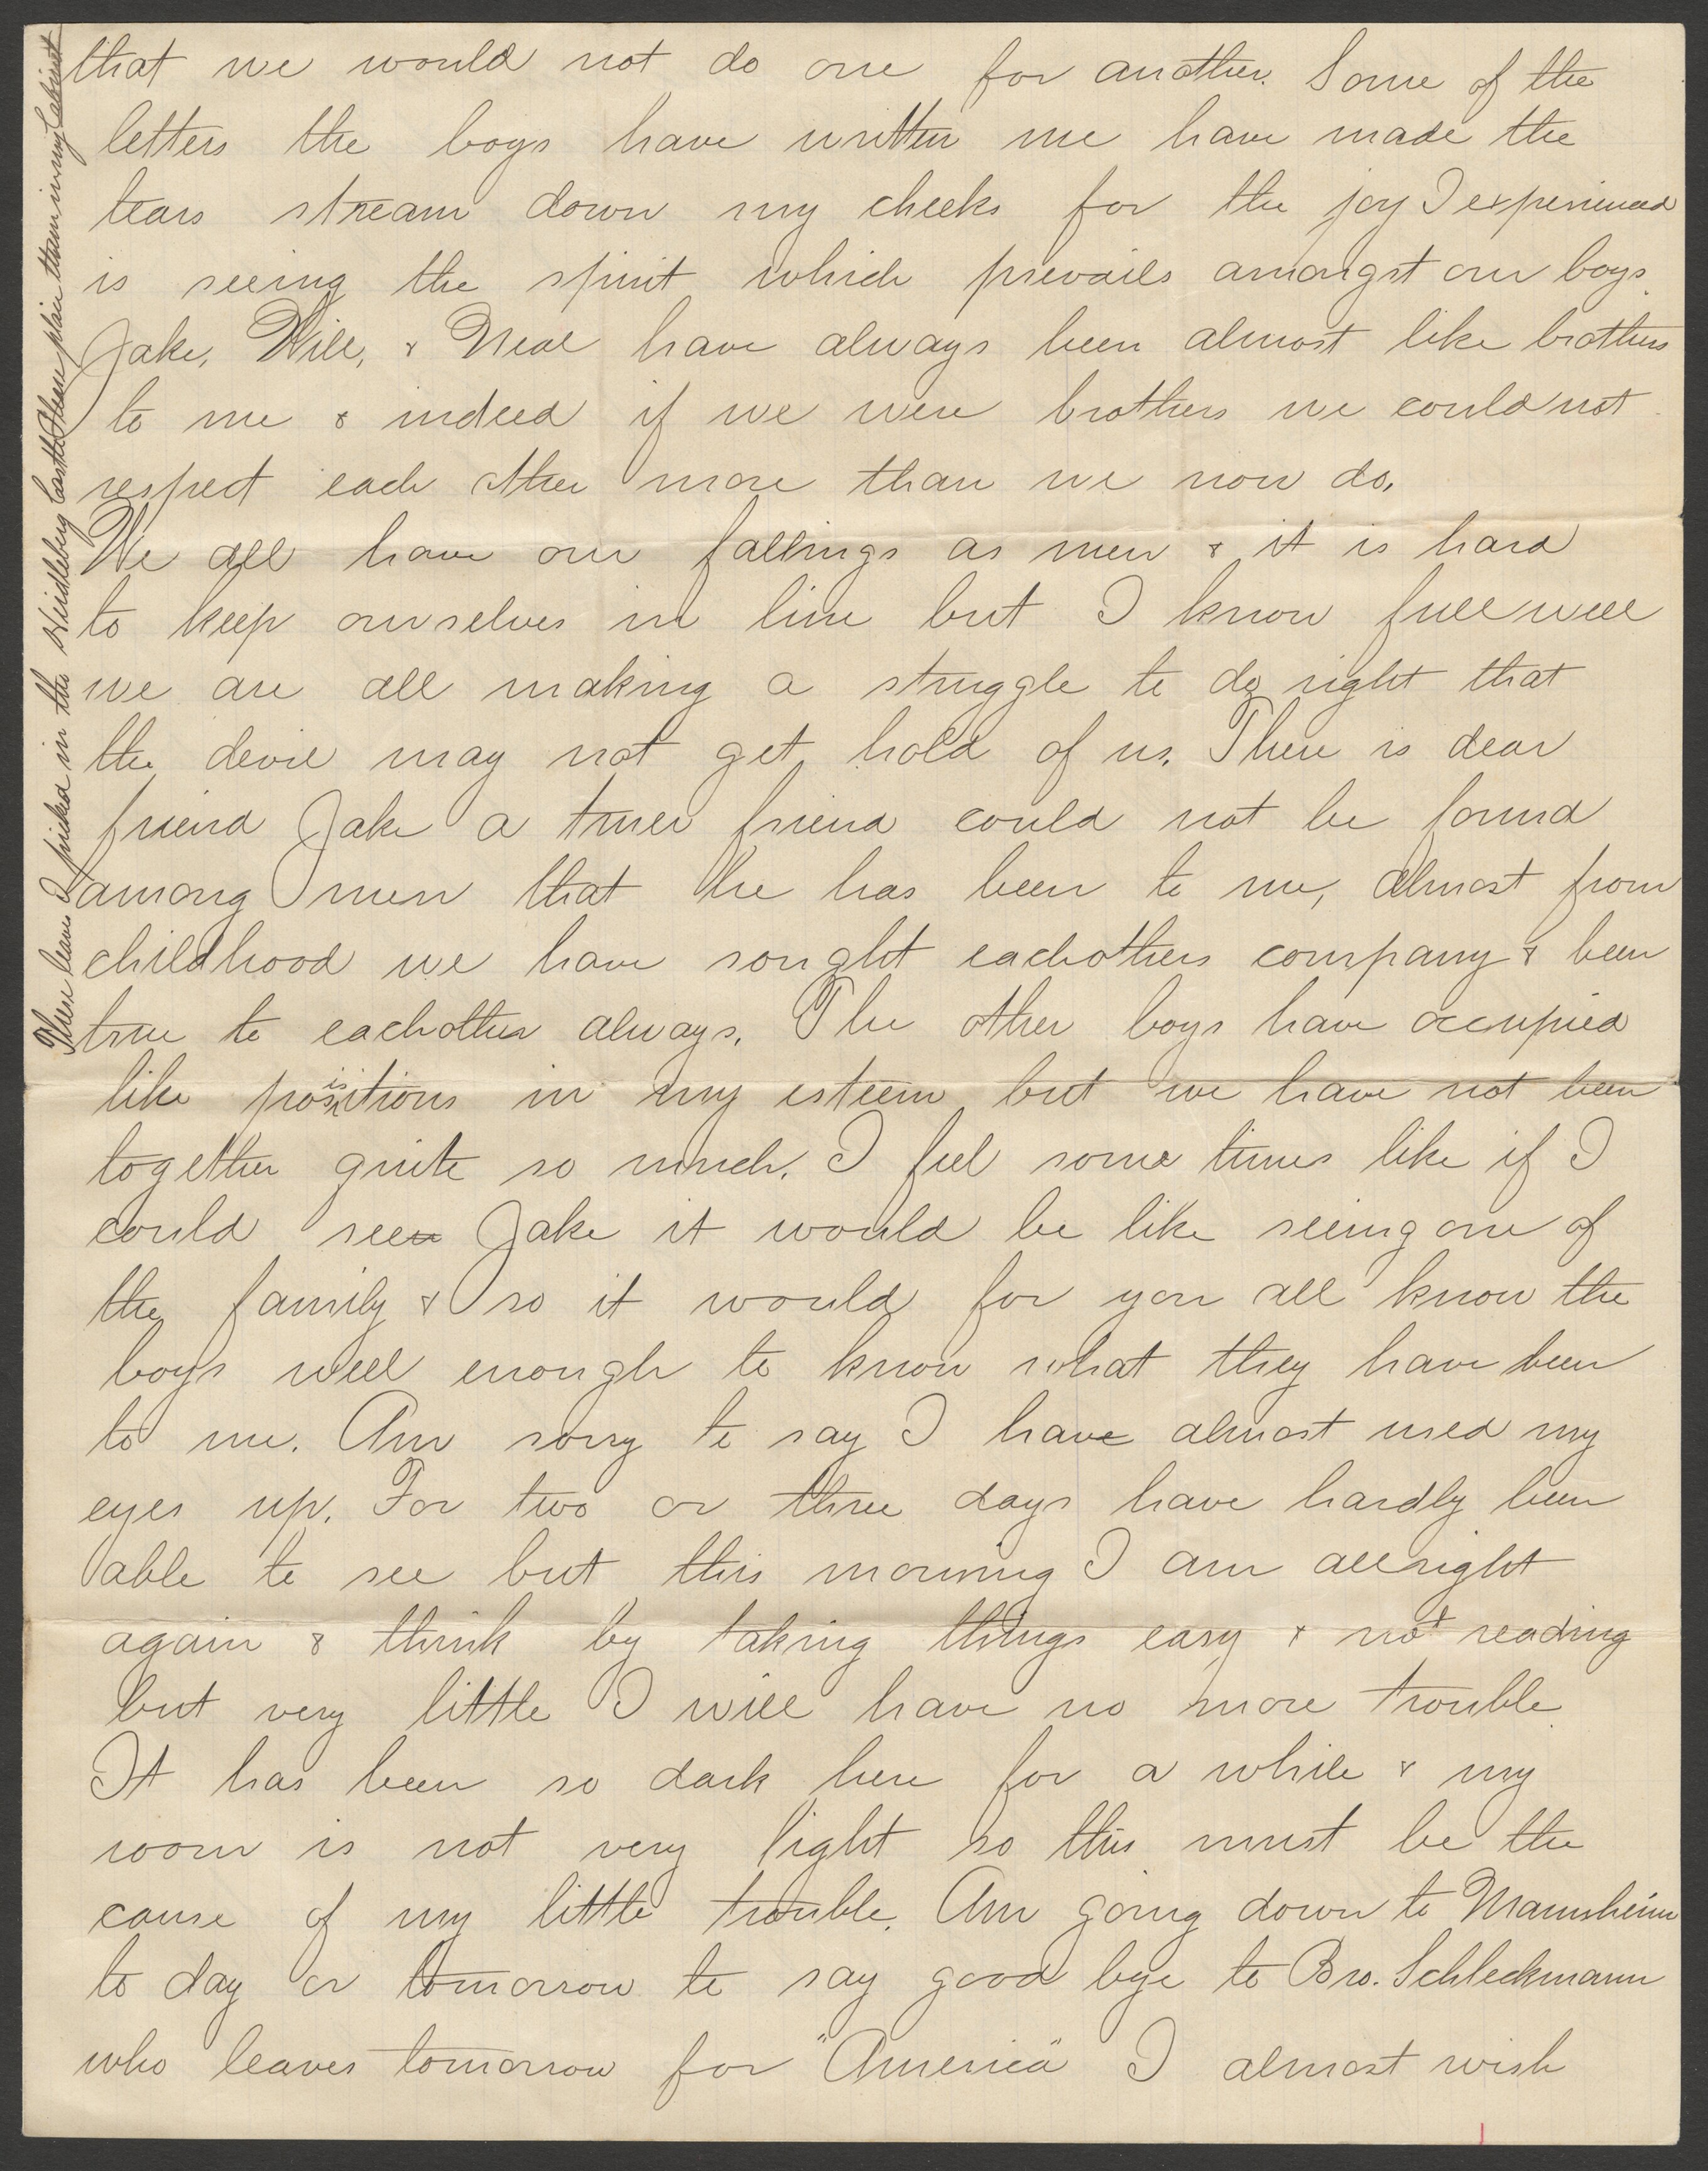 that we would not do one for another. Some of the
letters the boys have written me have made the
tears stream down my cheeks for the joy I experienced
is seeing the spirit which prevails amongst our boys.
Jake, Will, & Neal have always been almost like brothers
to me & indeed if we were brothers we could not
respect each other more than we now do.
We all have our fallings as men & it is hard
to keep ourselves in line but I know full well
we are all making a struggle to do right that
the devil may not get hold of us. There is dear
friend Jake a truer friend could not be found
among men that he has been to me, almost from
childhood we have sought eachothers company & been
true to eachother always. The other boys have occupied
like positions in my esteem but we have not been
together quite so much. I feel some times like if I
could see Jake it would be like seeing one of
the family & so it would for you all know the
boys well enough to know what they have been
to me. Am sorry to say I have almost used my
eyes up. For two or three days have hardly been
able to see but this morning I am allright
again & think by taking things easy & not reading
but very little I will have no more trouble.
It has been so dark here for a while & my
room is not very light so this must be the
cause of my little trouble. Am going down to Mannsheim
to day or tomorrow to say good bye to Bro. Schleckmann
who leaves tomorrow for "America" I almost wish
These leaves I picked in the Heidleberg Castle. Please place them in my Cabinet